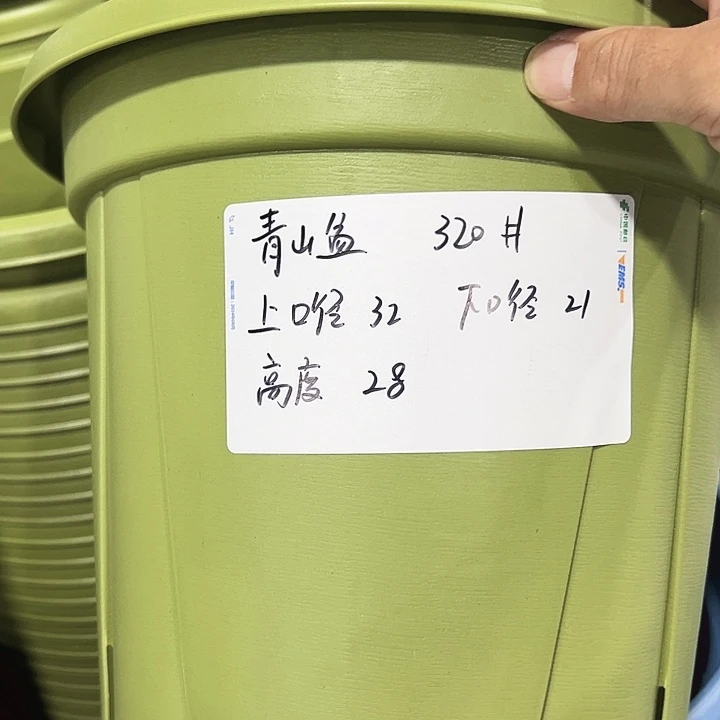 青山盆 320#
上口径 32 下口径 21
高度 28
中国邮政
EMS